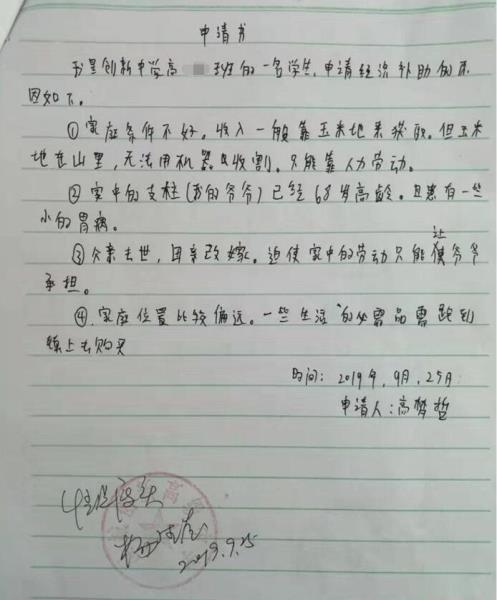 申请书
我是创新中学高 班的一名学生,申请经济补助的原
因如下。
①家庭条件不好,收入一般靠玉米地来获取。但玉米
地在山里,无法用机器收割。只能靠人力劳动。
②家中的支柱(我的爷爷)已经68岁高龄。且患有一些
小的胃病。
③父亲去世,母亲改嫁。迫使家中的劳动只能让爷爷
承担。
④.家庭位置比较偏远。一些生活的必需品需跑到
镇上去购买
时间:2019年,9月,25日
申请人:高梦哲
情况属实
2019.9.25